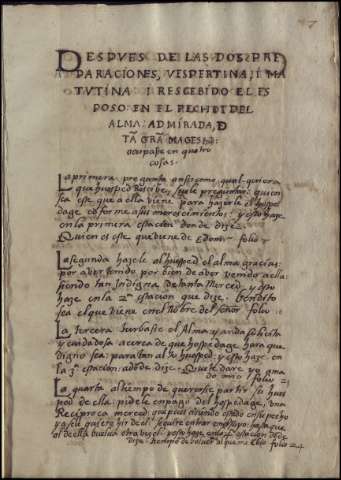 DESPVES DE LAS DOS PRE
PARACIONES, VESPERTINA, I MA
TVTINA I RESCEBIDO EL ES
POSO EN EL PECHO DEL
ALMA: ADMIRADA, D
TĀ GRĀ MAGESt
ocupase en quatro
cosas.
La primera pregunta assi como qual quiera
que huesped Rescibe, suele preguntar: quien
sea este que a ella viene para hazerle el hospe
dage cōforme a sus merescimientos: y esto haze
en la primera estacion donde dize.
Quien es este que viene de Edom. folio
La segunda hazele al huesped el alma gracias:
por aver tenido por bien de aver venido a ella:
siendo tan Indigna de tanta Merced, y esto
haze en la 2ª estacion que dize. bendito
sea el que viene en el nōbre del señor folio
La tercera turbase el Alma y anda solicita
y cuidadosa acerca de que hospedage hara que
digno sea: para tan alto huesped: y esto haze en
la 3ª estacion: adōde dize. Que te dare yo ama
do mio folio
La quarta al tiempo de quererse partir su hues
ped de ella: pidele en pago del hospedage, una
Reciproca merced:
al de ella buelva otra vez
dize: tiempo es de bolver al que me folio 24